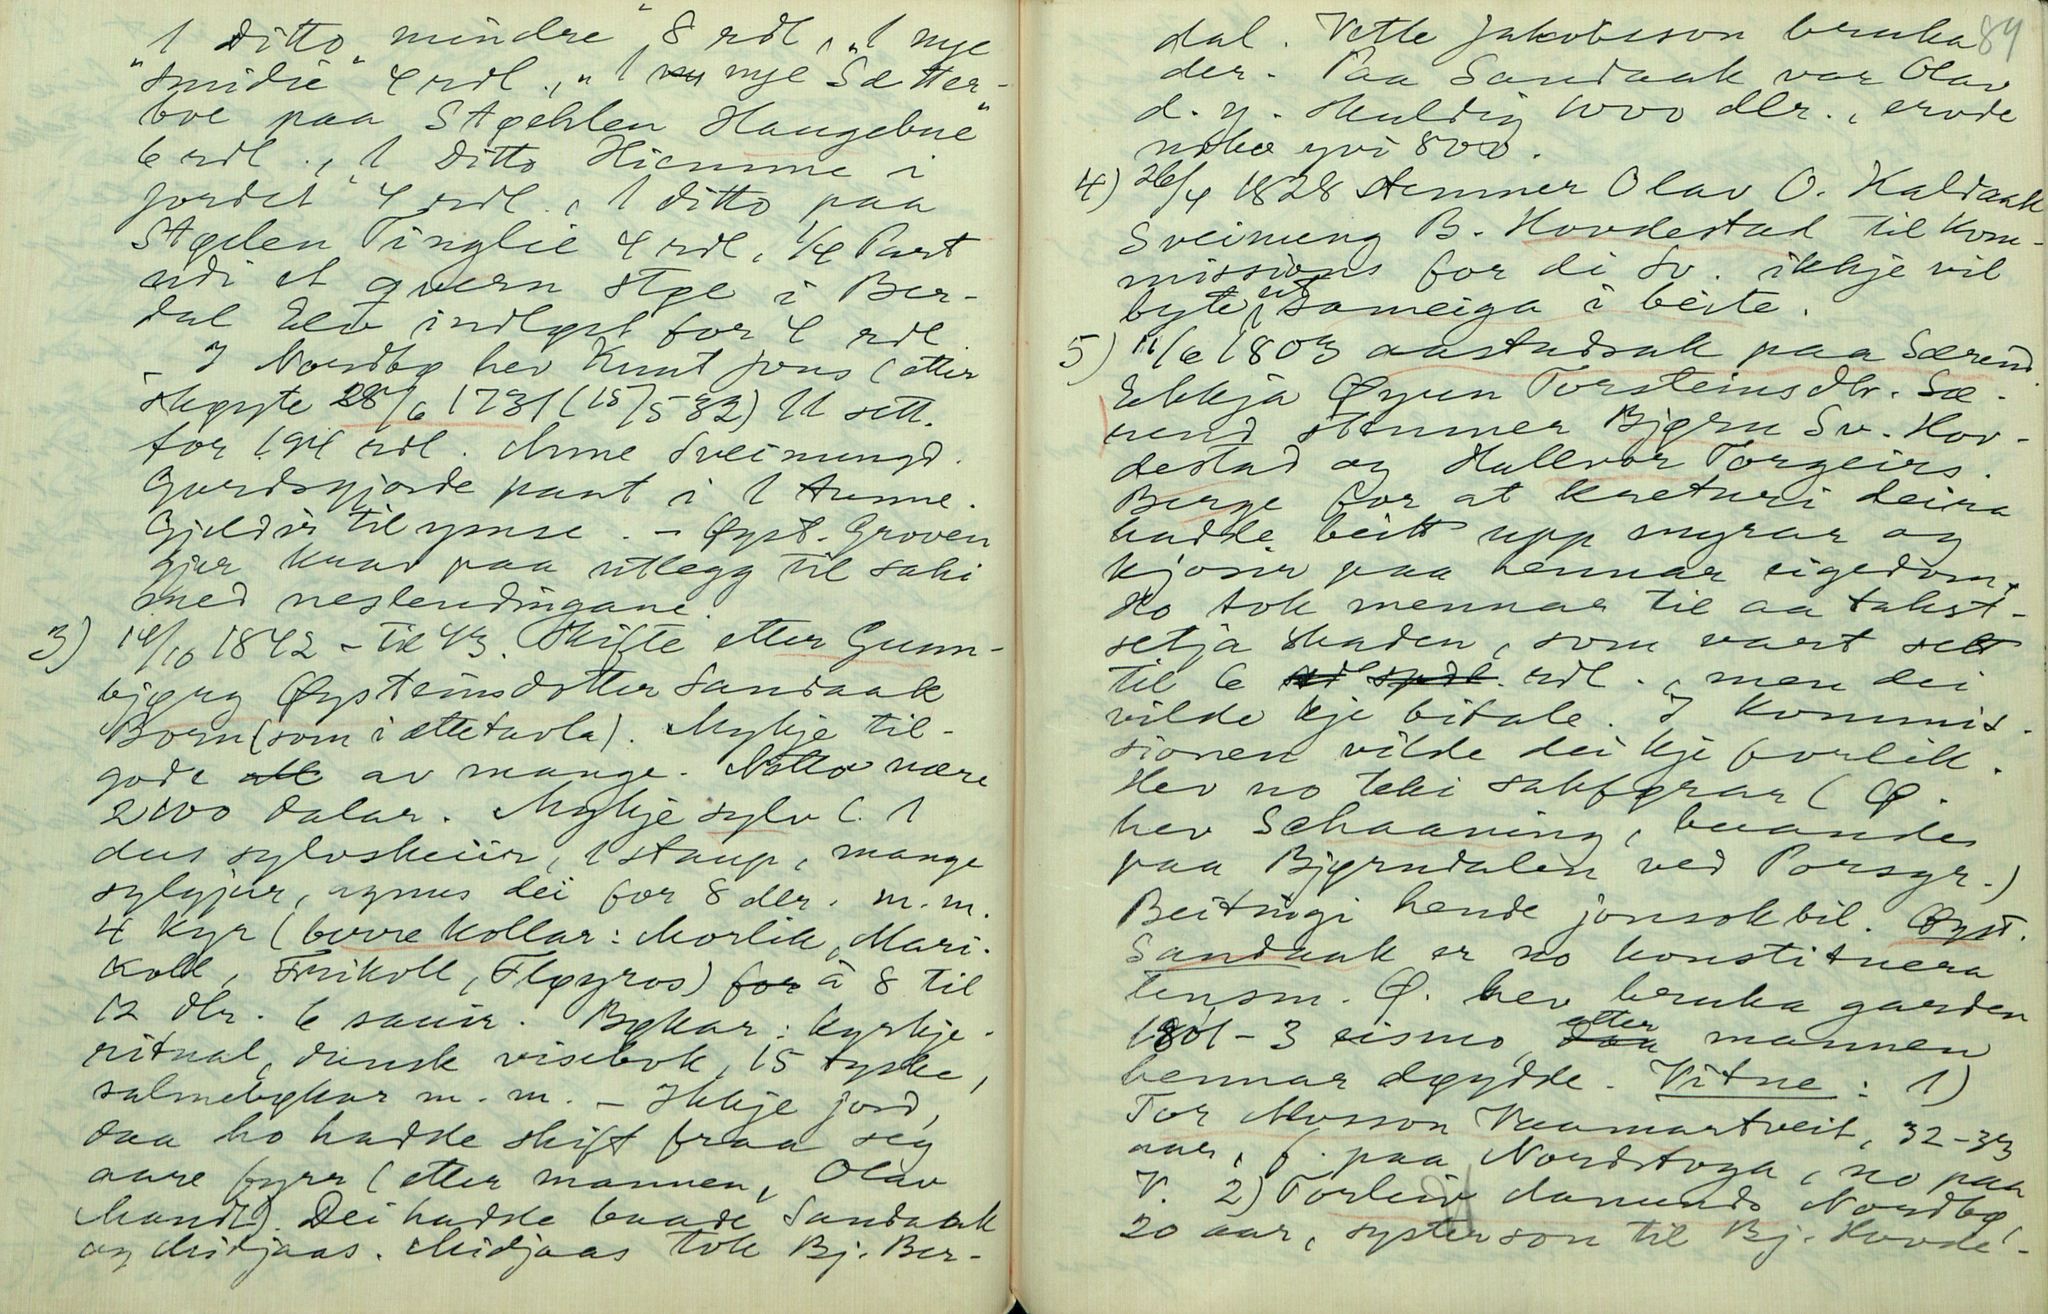 1 Ditto, mindre" 8 rdl., "1 nye
"Smidie" 4 rdl., "1 nye Sætter-
boe paa Støhlen Haugebue"
6 rdl., "1 Ditto Hiemme i
Jordet" 4 rdl., 1 ditto paa
Støelen Tinglie 4 rdl., 1/4 Part
udi et qvern støe i Ber-
dal Elv indløst for 4 rdl.
- I Nordbø hev Knut Jons (etter
skøyte 28/6 1731 (15/5-32) 11 sett.
for 194 rdl. Anne Sveinungd.
Gardsgjorde pant i 1 tunne.
Gjeld ir til ymse. - Øyst. Groven
gjer krav paa utlegg til saki
med neslendingane.
3) 14/10 1842 - til 43. Skifte etter Gunn-
bjørg Øysteinsdotter Sandaak
Born (som i ættetavla). Mykje til-
gode av mange. Netto være
2100 dalar. Mykje sylv (. 1
dus sylvskeiir, 1 staup, mange
sylgjur, nynus dei for 8 dlr. m.m.
4 kyr (berre kollar: Morlik, Mari-
Koll, Frikoll, Fløyros) for à 8 til
12 dlr. 6 sauir. Bøkar: kyrkje-
ritual, dansk visebok, 15 tyske,
salmebøkar m.m. - Ikkje jord,
daa ho hadde skift fraa seg
aare fyrr (etter mannen, Olav
Mandt). Dei hadde baade Sandaak
og Midjaas. Midjaas tok Bj. Ber-
84
dal. Vetle Jakobsson bruka
der. Paa Sandaak var Olav
d. y. skuldig 1000 dlr., ervde
noko yvi 800.
4) 26/4 1828 stemner Olav O. Kaldaak
Sveinung B. Hovdestad til kom-
missions for di Sv. ikkje vil
byte ut sameiga i beite.
5) 11/6 1803 aastadsak paa Særend.
Ekkja Øyen Torsteinsdtr. Sæ-
rend stemner Bjørn Sv. Hov-
destad og Hallvor Torgeirs.
Berge for at kreturi deira
hadde beitt upp myrar og
kjosir paa hennar eigedom.
Ho tok mennar til aa takst-
setja skaden, som vart sett
til 6 rdl., men dei
vilde kje bitale. I kommis-
sionen vilde dei kje forlik.
Hev no teki sakførar (Ø.
hev Schaaning, buande
paa Bjørndalen ved Porsgr.)
Beitingi hende jonsokbil. Øyst.
Sandaak er no konstituera
lensm. Ø. hev bruka garden
1801-3 eismo, etter mannen
hennar døydde. Vitne: 1)
Tor Aasson Vaamartveit, 32-33
aar, f. paa Nordstoga, no paa
V. 2) Torleiv Aamunds Nordbø,
20 aar, systerson til Bj. Hovde-